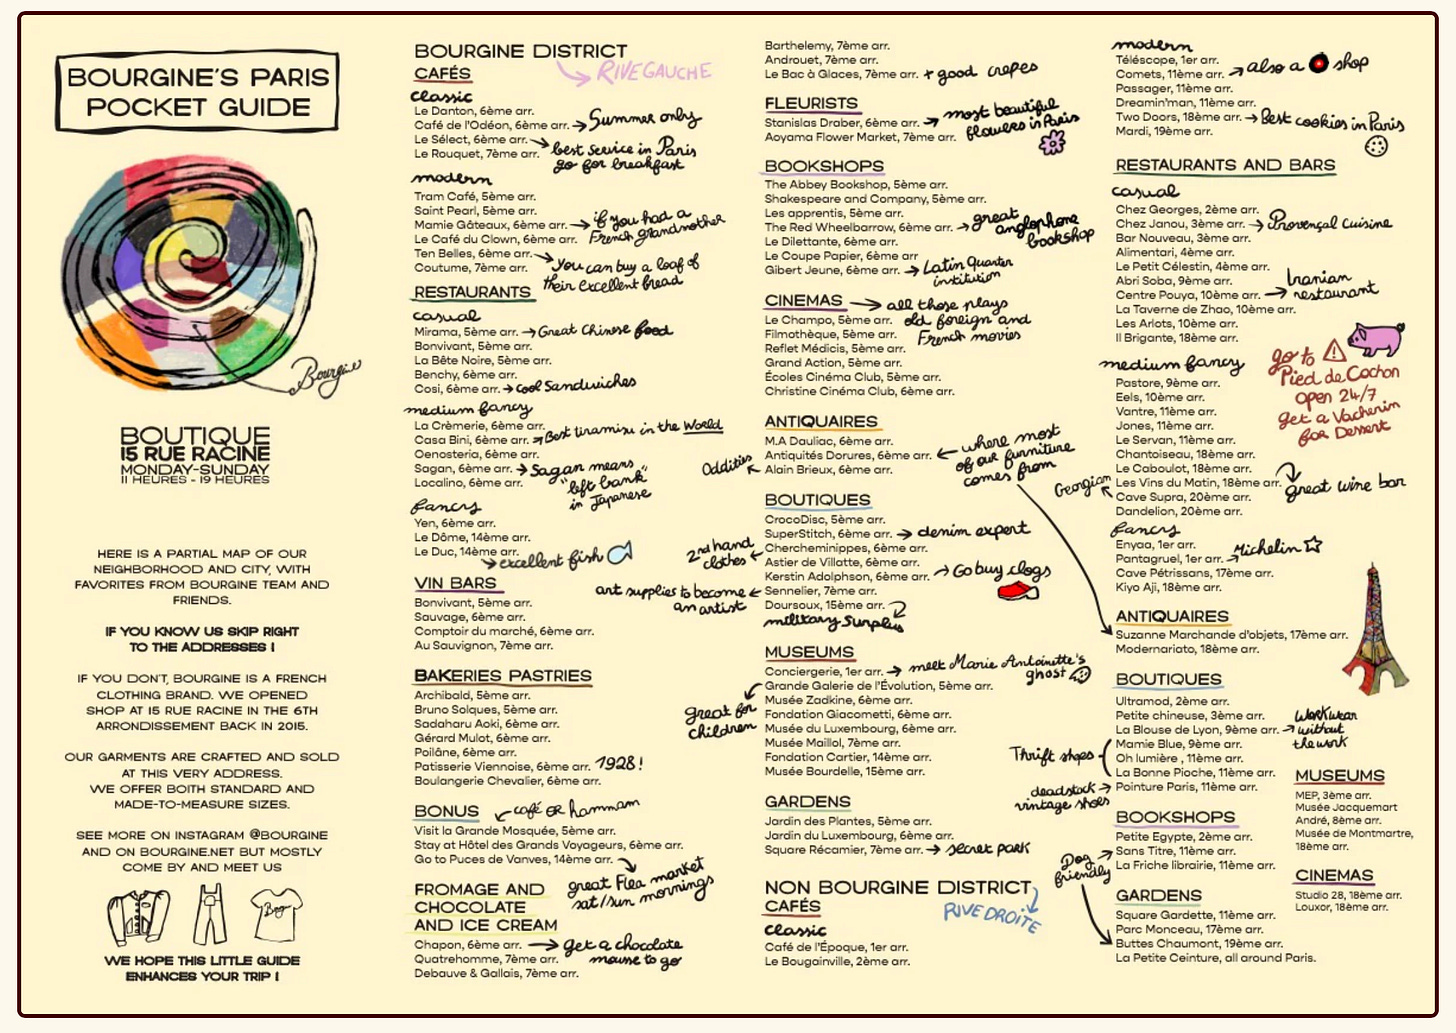 BOURGINE'S PARIS
POCKET GUIDE
Bourgine
BOUTIQUE
15 RUE RACINE
MONDAY-SUNDAY
11 HEURES - 19 HEURES
HERE IS A PARTIAL MAP OF OUR
NEIGHBORHOOD AND CITY, WITH
FAVORITES FROM BOURGINE TEAM AND
FRIENDS.
IF YOU KNOW US SKIP RIGHT
TO THE ADDRESSES !
IF YOU DON'T, BOURGINE IS A FRENCH
CLOTHING BRAND. WE OPENED
SHOP AT 15 RUE RACINE IN THE 6TH
ARRONDISSEMENT BACK IN 2015.
OUR GARMENTS ARE CRAFTED AND SOLD
AT THIS VERY ADDRESS.
WE OFFER BOITH STANDARD AND
MADE-TO-MEASURE SIZES.
SEE MORE ON INSTAGRAM @BOURGINE
AND ON BOURGINE.NET BUT MOSTLY
COME BY AND MEET US
WE HOPE THIS LITTLE GUIDE
ENHANCES YOUR TRIP !
BOURGINE DISTRICT
RIVE GAUCHE
CAFÉS
classic
Le Danton, 6ème arr.
Café de l'Odéon, 6ème arr. → Summer only
Le Sélect, 6ème arr. → best service in Paris
go for breakfast
Le Rouquet, 7ème arr.
modern
Tram Café, 5ème arr.
Saint Pearl, 5ème arr.
Mamie Gâteaux, 6ème arr. → if you had a
French grandmother
Le Café du Clown, 6ème arr.
Ten Belles, 6ème arr. → You can buy a loaf of
their excellent bread
Coutume, 7ème arr.
RESTAURANTS
casual
Mirama, 5ème arr. → Great Chinese food
Bonvivant, 5ème arr.
La Bête Noire, 5ème arr.
Benchy, 6ème arr.
Cosi, 6ème arr. → cool Sandwiches
medium fancy
La Crèmerie, 6ème arr.
Casa Bini, 6ème arr. → Best tiramisu in the World
Oenosteria, 6ème arr.
Sagan, 6ème arr. → Sagan means
"left bank"
in Japanese
Localino, 6ème arr.
fancy
Yen, 6ème arr.
Le Dôme, 14ème arr.
Le Duc, 14ème arr.
→ excellent fish
VIN BARS
Bonvivant, 5ème arr.
Sauvage, 6ème arr.
Comptoir du marché, 6ème arr.
Au Sauvignon, 7ème arr.
BAKERIES PASTRIES
Archibald, 5ème arr.
Bruno Solques, 5ème arr.
Sadaharu Aoki, 6ème arr.
Gérard Mulot, 6ème arr.
Poilâne, 6ème arr.
Patisserie Viennoise, 6ème arr. 1928!
Boulangerie Chevalier, 6ème arr.
BONUS ← café OR hammam
Visit la Grande Mosquée, 5ème arr.
Stay at Hôtel des Grands Voyageurs, 6ème arr.
Go to Puces de Vanves, 14ème arr.
great Flea market
sat/sun mornings
FROMAGE AND
CHOCOLATE
AND ICE CREAM
Chapon, 6ème arr. → get a chocolate
mousse to go
Quatrehomme, 7ème arr.
Debauve & Gallais, 7ème arr.
Barthelemy, 7ème arr.
Androuet, 7ème arr.
Le Bac à Glaces, 7ème arr. + good crepes
FLEURISTS
Stanislas Draber, 6ème arr. → most beautiful
flowers in Paris
Aoyama Flower Market, 7ème arr.
BOOKSHOPS
The Abbey Bookshop, 5ème arr.
Shakespeare and Company, 5ème arr.
Les apprentis, 5ème arr.
The Red Wheelbarrow, 6ème arr. → great
anglophone
bookshop
Le Dilettante, 6ème arr.
Le Coupe Papier, 6ème arr
Gibert Jeune, 6ème arr. → Latin Quarter
institution
CINEMAS → all those plays
old foreign and
French movies
Le Champo, 5ème arr.
Filmothèque, 5ème arr.
Reflet Médicis, 5ème arr.
Grand Action, 5ème arr.
Écoles Cinéma Club, 5ème arr.
Christine Cinéma Club, 6ème arr.
ANTIQUAIRES
M.A Dauliac, 6ème arr.
Antiquités Dorures, 6ème arr. ← where most
of our furniture
comes from
Oddities ← Alain Brieux, 6ème arr.
BOUTIQUES
CrocoDisc, 5ème arr.
SuperStitch, 6ème arr. → denim expert
Chercheminippes, 6ème arr.
2nd hand
clothes ←
Astier de Villatte, 6ème arr.
Kerstin Adolphson, 6ème arr. → Go buy clogs
art supplies to become
an artist ← Sennelier, 7ème arr.
Doursoux, 15ème arr.
military Surplus
MUSEUMS
Conciergerie, 1er arr. → meet Marie Antoinette's
ghost
Grande Galerie de l'Évolution, 5ème arr.
great for
children
Musée Zadkine, 6ème arr.
Fondation Giacometti, 6ème arr.
Musée du Luxembourg, 6ème arr.
Musée Maillol, 7ème arr.
Fondation Cartier, 14ème arr.
Musée Bourdelle, 15ème arr.
GARDENS
Jardin des Plantes, 5ème arr.
Jardin du Luxembourg, 6ème arr.
Square Récamier, 7ème arr. → secret park
NON BOURGINE DISTRICT
RIVE DROITE
CAFÉS
classic
Café de l'Époque, 1er arr.
Le Bougainville, 2ème arr.
modern
Téléscope, 1er arr.
Comets, 11ème arr. → also a shop
Passager, 11ème arr.
Dreamin'man, 11ème arr.
Two Doors, 18ème arr. → Best cookies in Paris
Mardi, 19ème arr.
RESTAURANTS AND BARS
casual
Chez Georges, 2ème arr.
Chez Janou, 3ème arr. → Provençal cuisine
Bar Nouveau, 3ème arr.
Alimentari, 4ème arr.
Le Petit Célestin, 4ème arr.
Abri Soba, 9ème arr.
Centre Pouya, 10ème arr. → Iranian
restaurant
La Taverne de Zhao, 10ème arr.
Les Arlots, 10ème arr.
Il Brigante, 18ème arr.
go to
Pied de Cochon
open 24/7
get a Vacherin
for Dessert
medium fancy
Pastore, 9ème arr.
Eels, 10ème arr.
Vantre, 11ème arr.
Jones, 11ème arr.
Le Servan, 11ème arr.
Chantoiseau, 18ème arr.
Le Caboulot, 18ème arr.
Les Vins du Matin, 18ème arr.
great wine bar
Georgian
Cave Supra, 20ème arr.
Dandelion, 20ème arr.
fancy
Enyaa, 1er arr.
Pantagruel, 1er arr. → Michelin ☆
Cave Pétrissans, 17ème arr.
Kiyo Aji, 18ème arr.
ANTIQUAIRES
Suzanne Marchande d'objets, 17ème arr.
Modernariato, 18ème arr.
BOUTIQUES
Ultramod, 2ème arr.
Petite chineuse, 3ème arr.
La Blouse de Lyon, 9ème arr. → Workwear
without
the work
Thrift shops
Mamie Blue, 9ème arr.
Oh lumière , 11ème arr.
La Bonne Pioche, 11ème arr.
deadstock
vintage shoes → Pointure Paris, 11ème arr.
BOOKSHOPS
Petite Egypte, 2ème arr.
Dog
friendly → Sans Titre, 11ème arr.
La Friche librairie, 11ème arr.
GARDENS
Square Gardette, 11ème arr.
Parc Monceau, 17ème arr.
Buttes Chaumont, 19ème arr.
La Petite Ceinture, all around Paris.
MUSEUMS
MEP, 3ème arr.
Musée Jacquemart
André, 8ème arr.
Musée de Montmartre,
18ème arr.
CINEMAS
Studio 28, 18ème arr.
Louxor, 18ème arr.